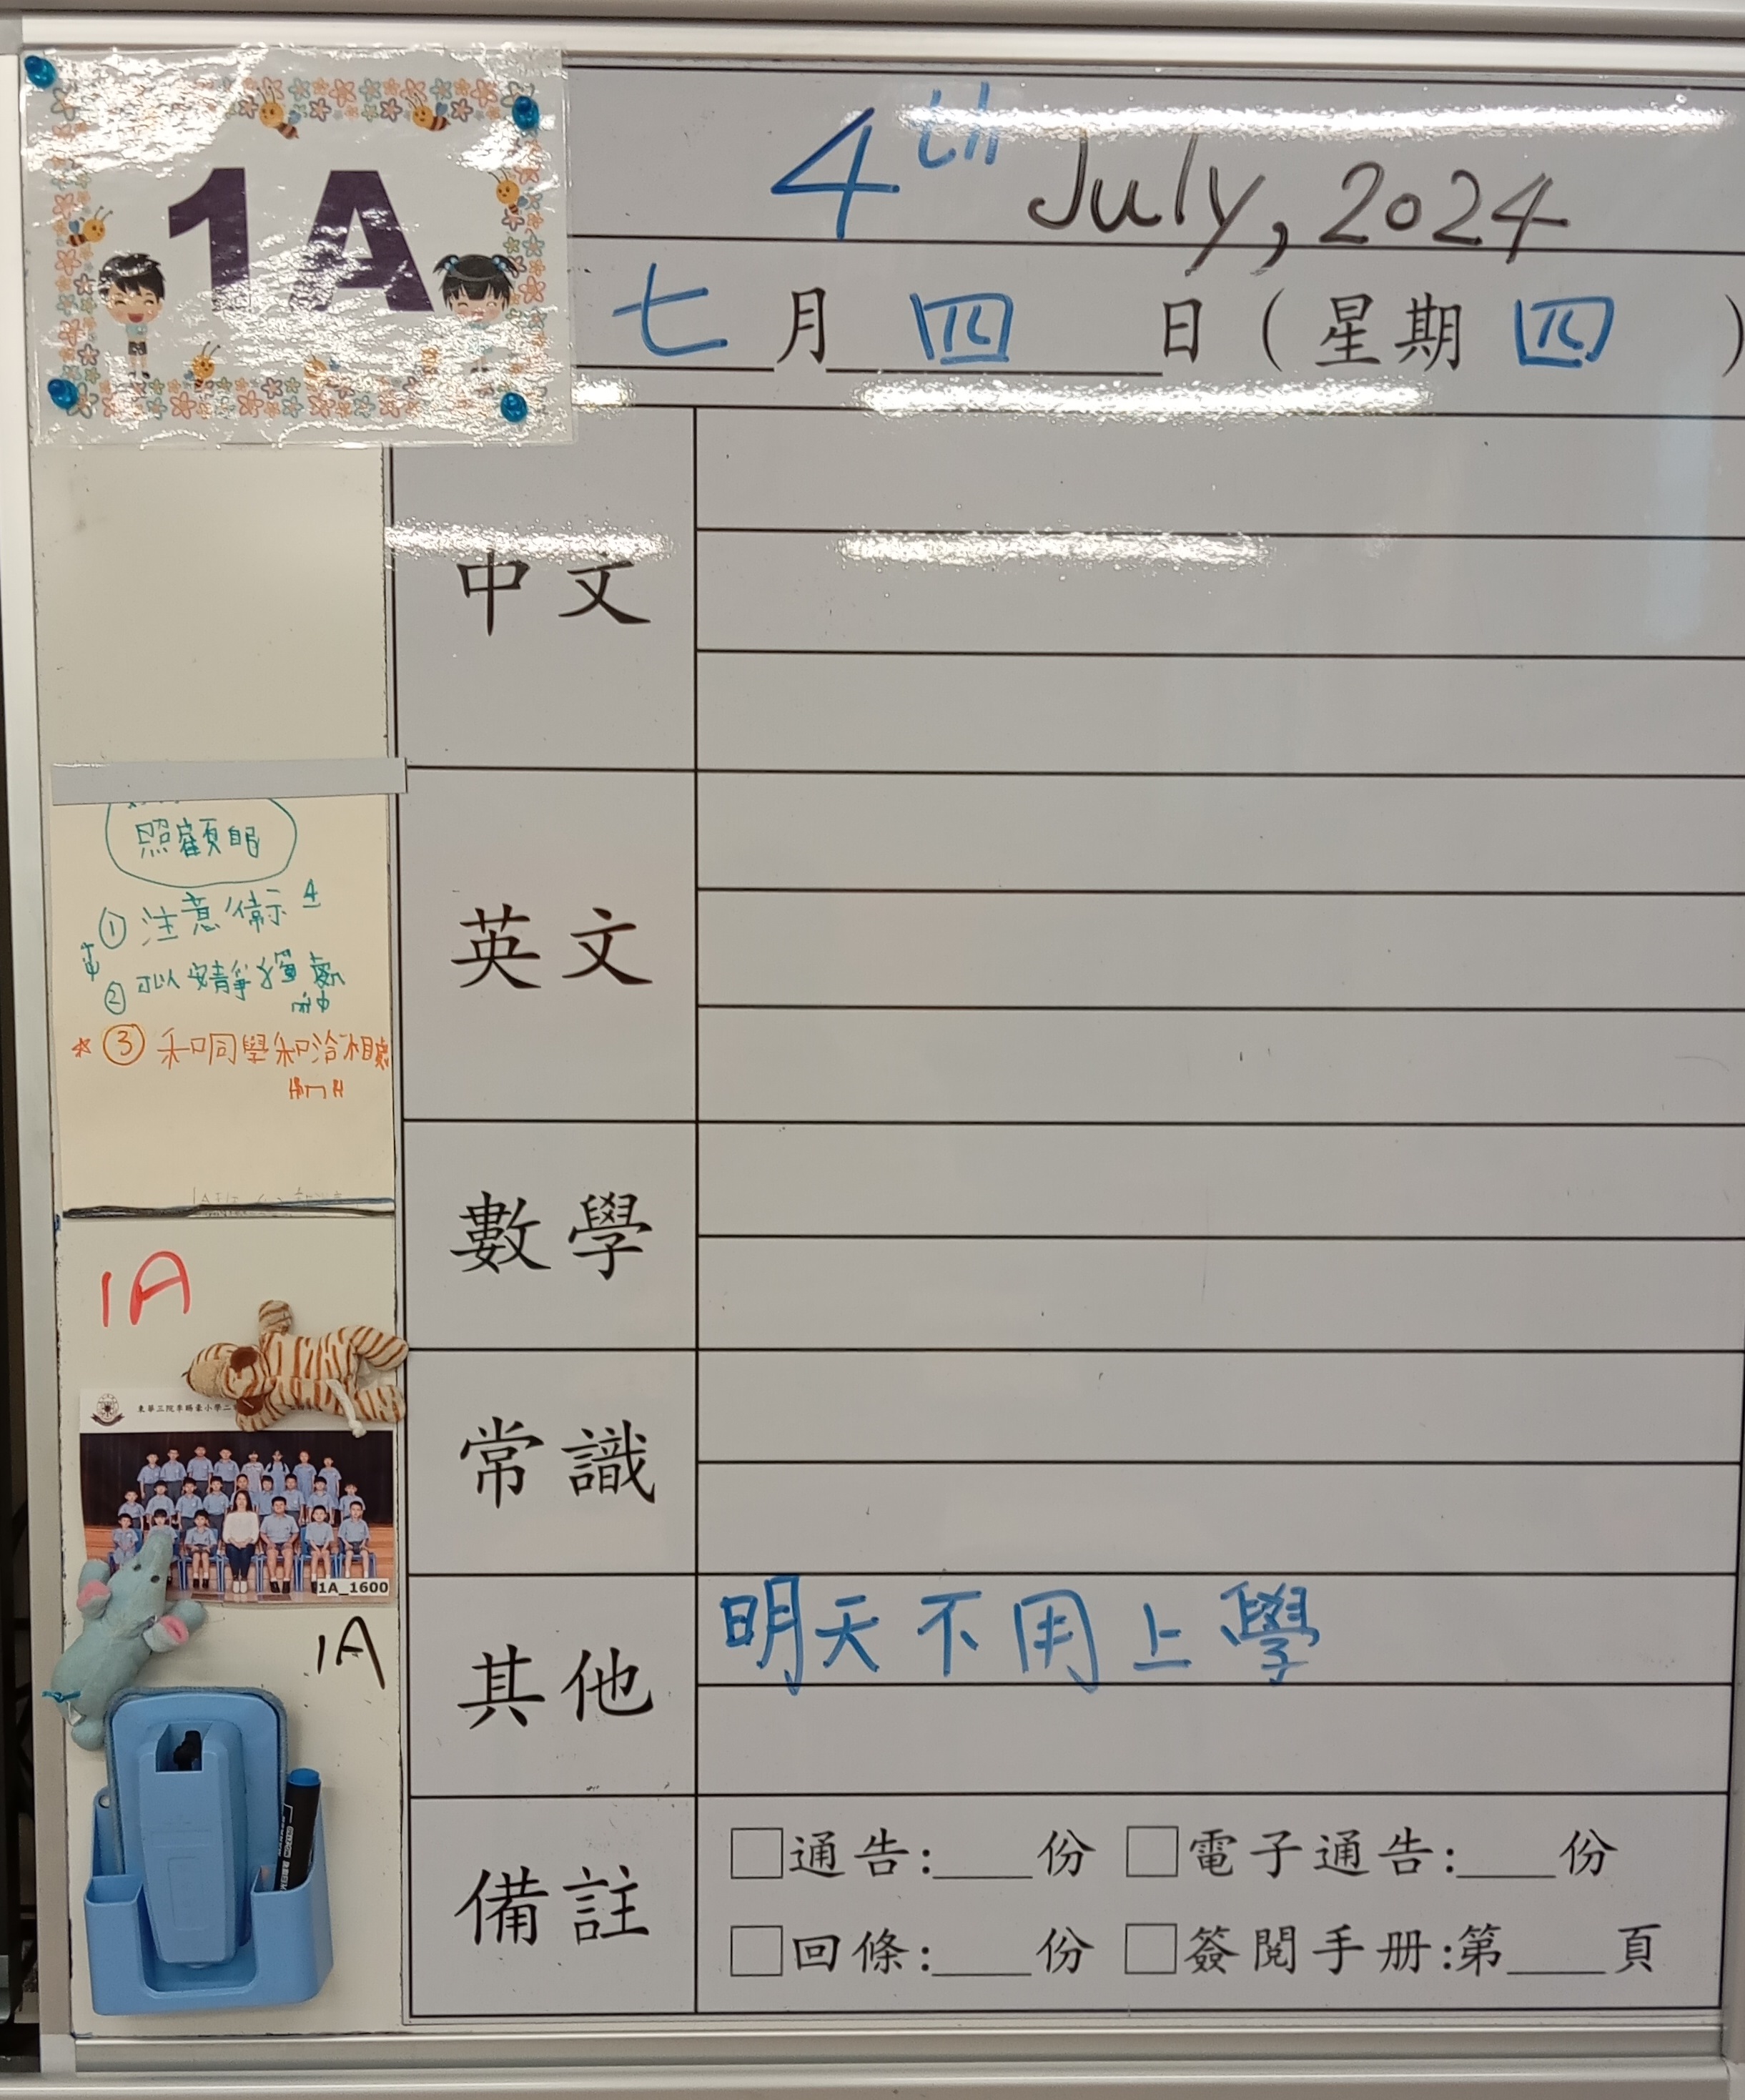 1A
4th July, 2024
七月四日(星期四)
中文
英文
數學
常識
其他 明天不用上學
備註 通告:___份 電子通告:___份
回條:___份 簽閱手册:第___頁
照顧自
① 注意
② 可以安靜
③ 和同學和洽相處
1A
1A_1600
1A